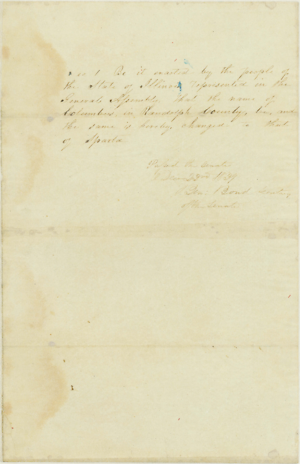 Sec 1 Be it enacted by the people of
the State of Illinois represented in the
General Assembly that the name of
Columbus in Randolph County be, and
the same is hereby changed to that
of Sparta
Passed the Senate
Benj. Bond Secretary
of the Senate